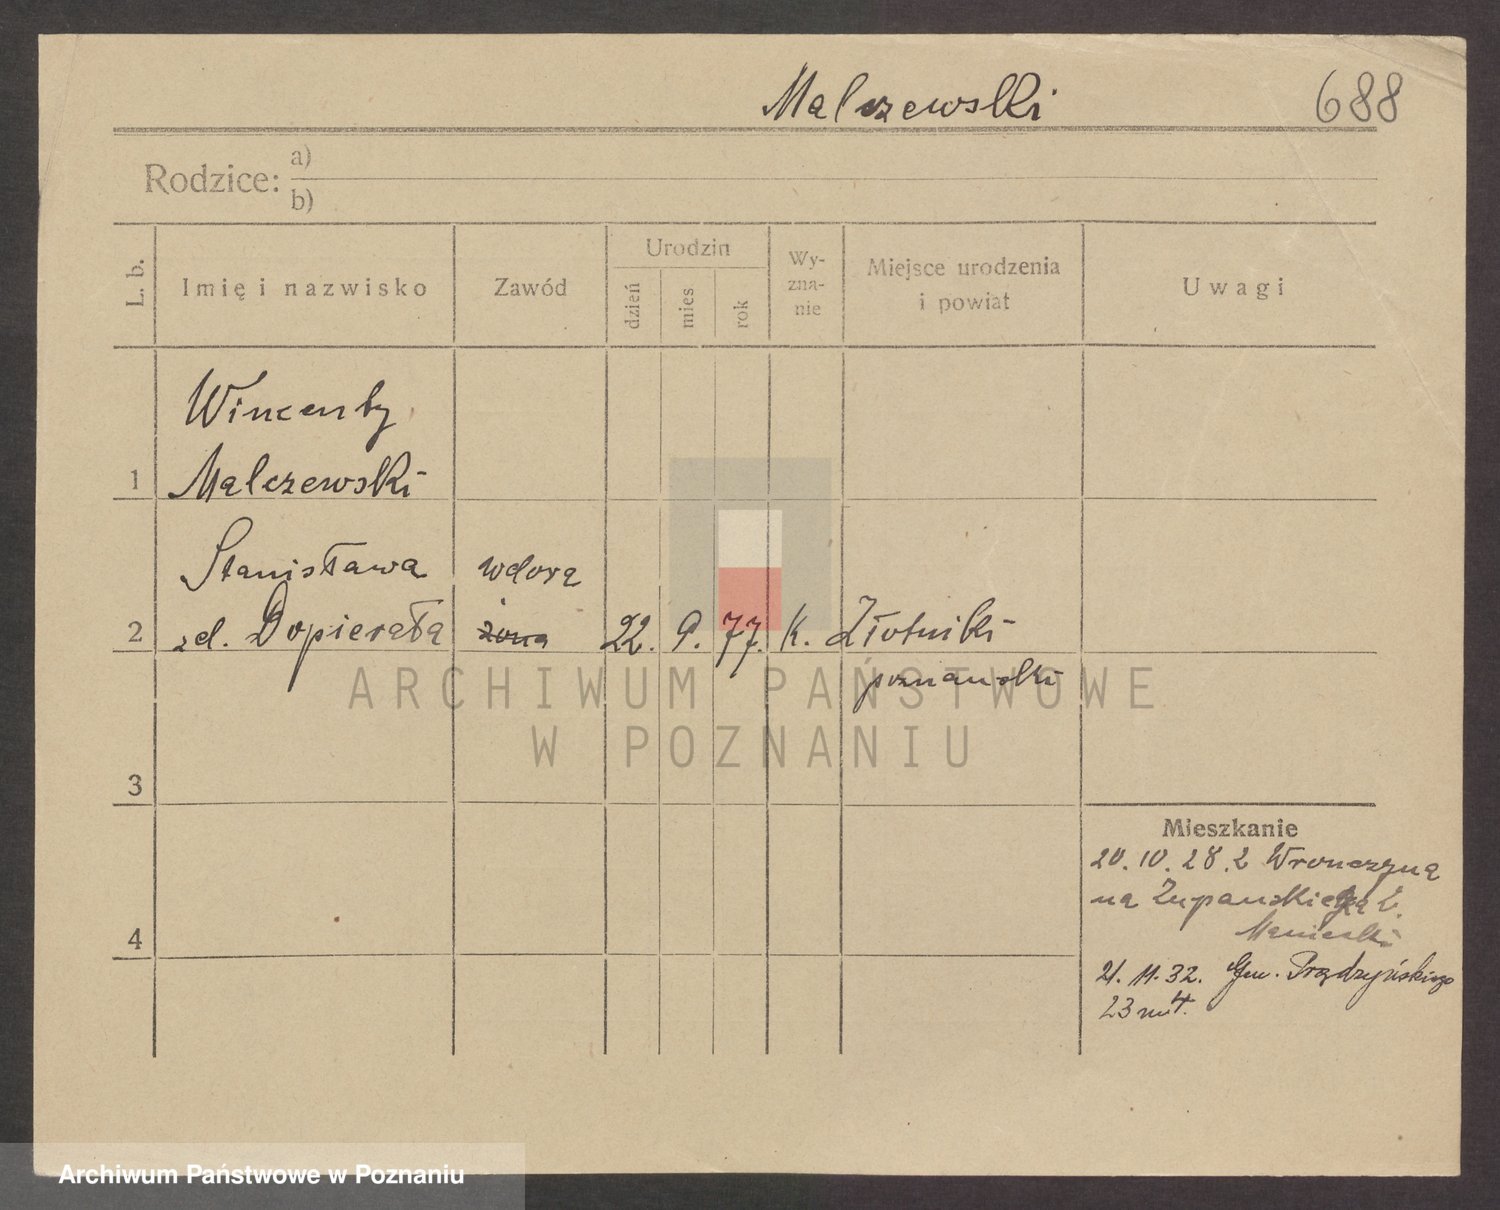 Malczewski 688
Rodzice: a)
b)
L. b. Imię i nazwisko Zawód Urodzin dzień mies rok Wy-zna-nie Miejsce urodzenia i powiat Uwagi
Wincenty
1 Malczewski
Stanisława wdowa
2 zd. Dopierała żona 22. 9. 77. k. Złotniki
poznański
ARCHIWUM PAŃSTWOWE
W POZNANIU
3
Mieszkanie
20. 10. 28. z Wronczyna
na Żupańskiego 2.
4
21. 11. 32. Gen. Prądzyńskiego
23 m 4.
Archiwum Państwowe w Poznaniu